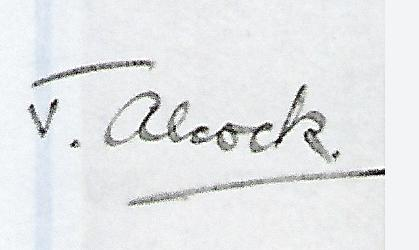 V. Alcock.